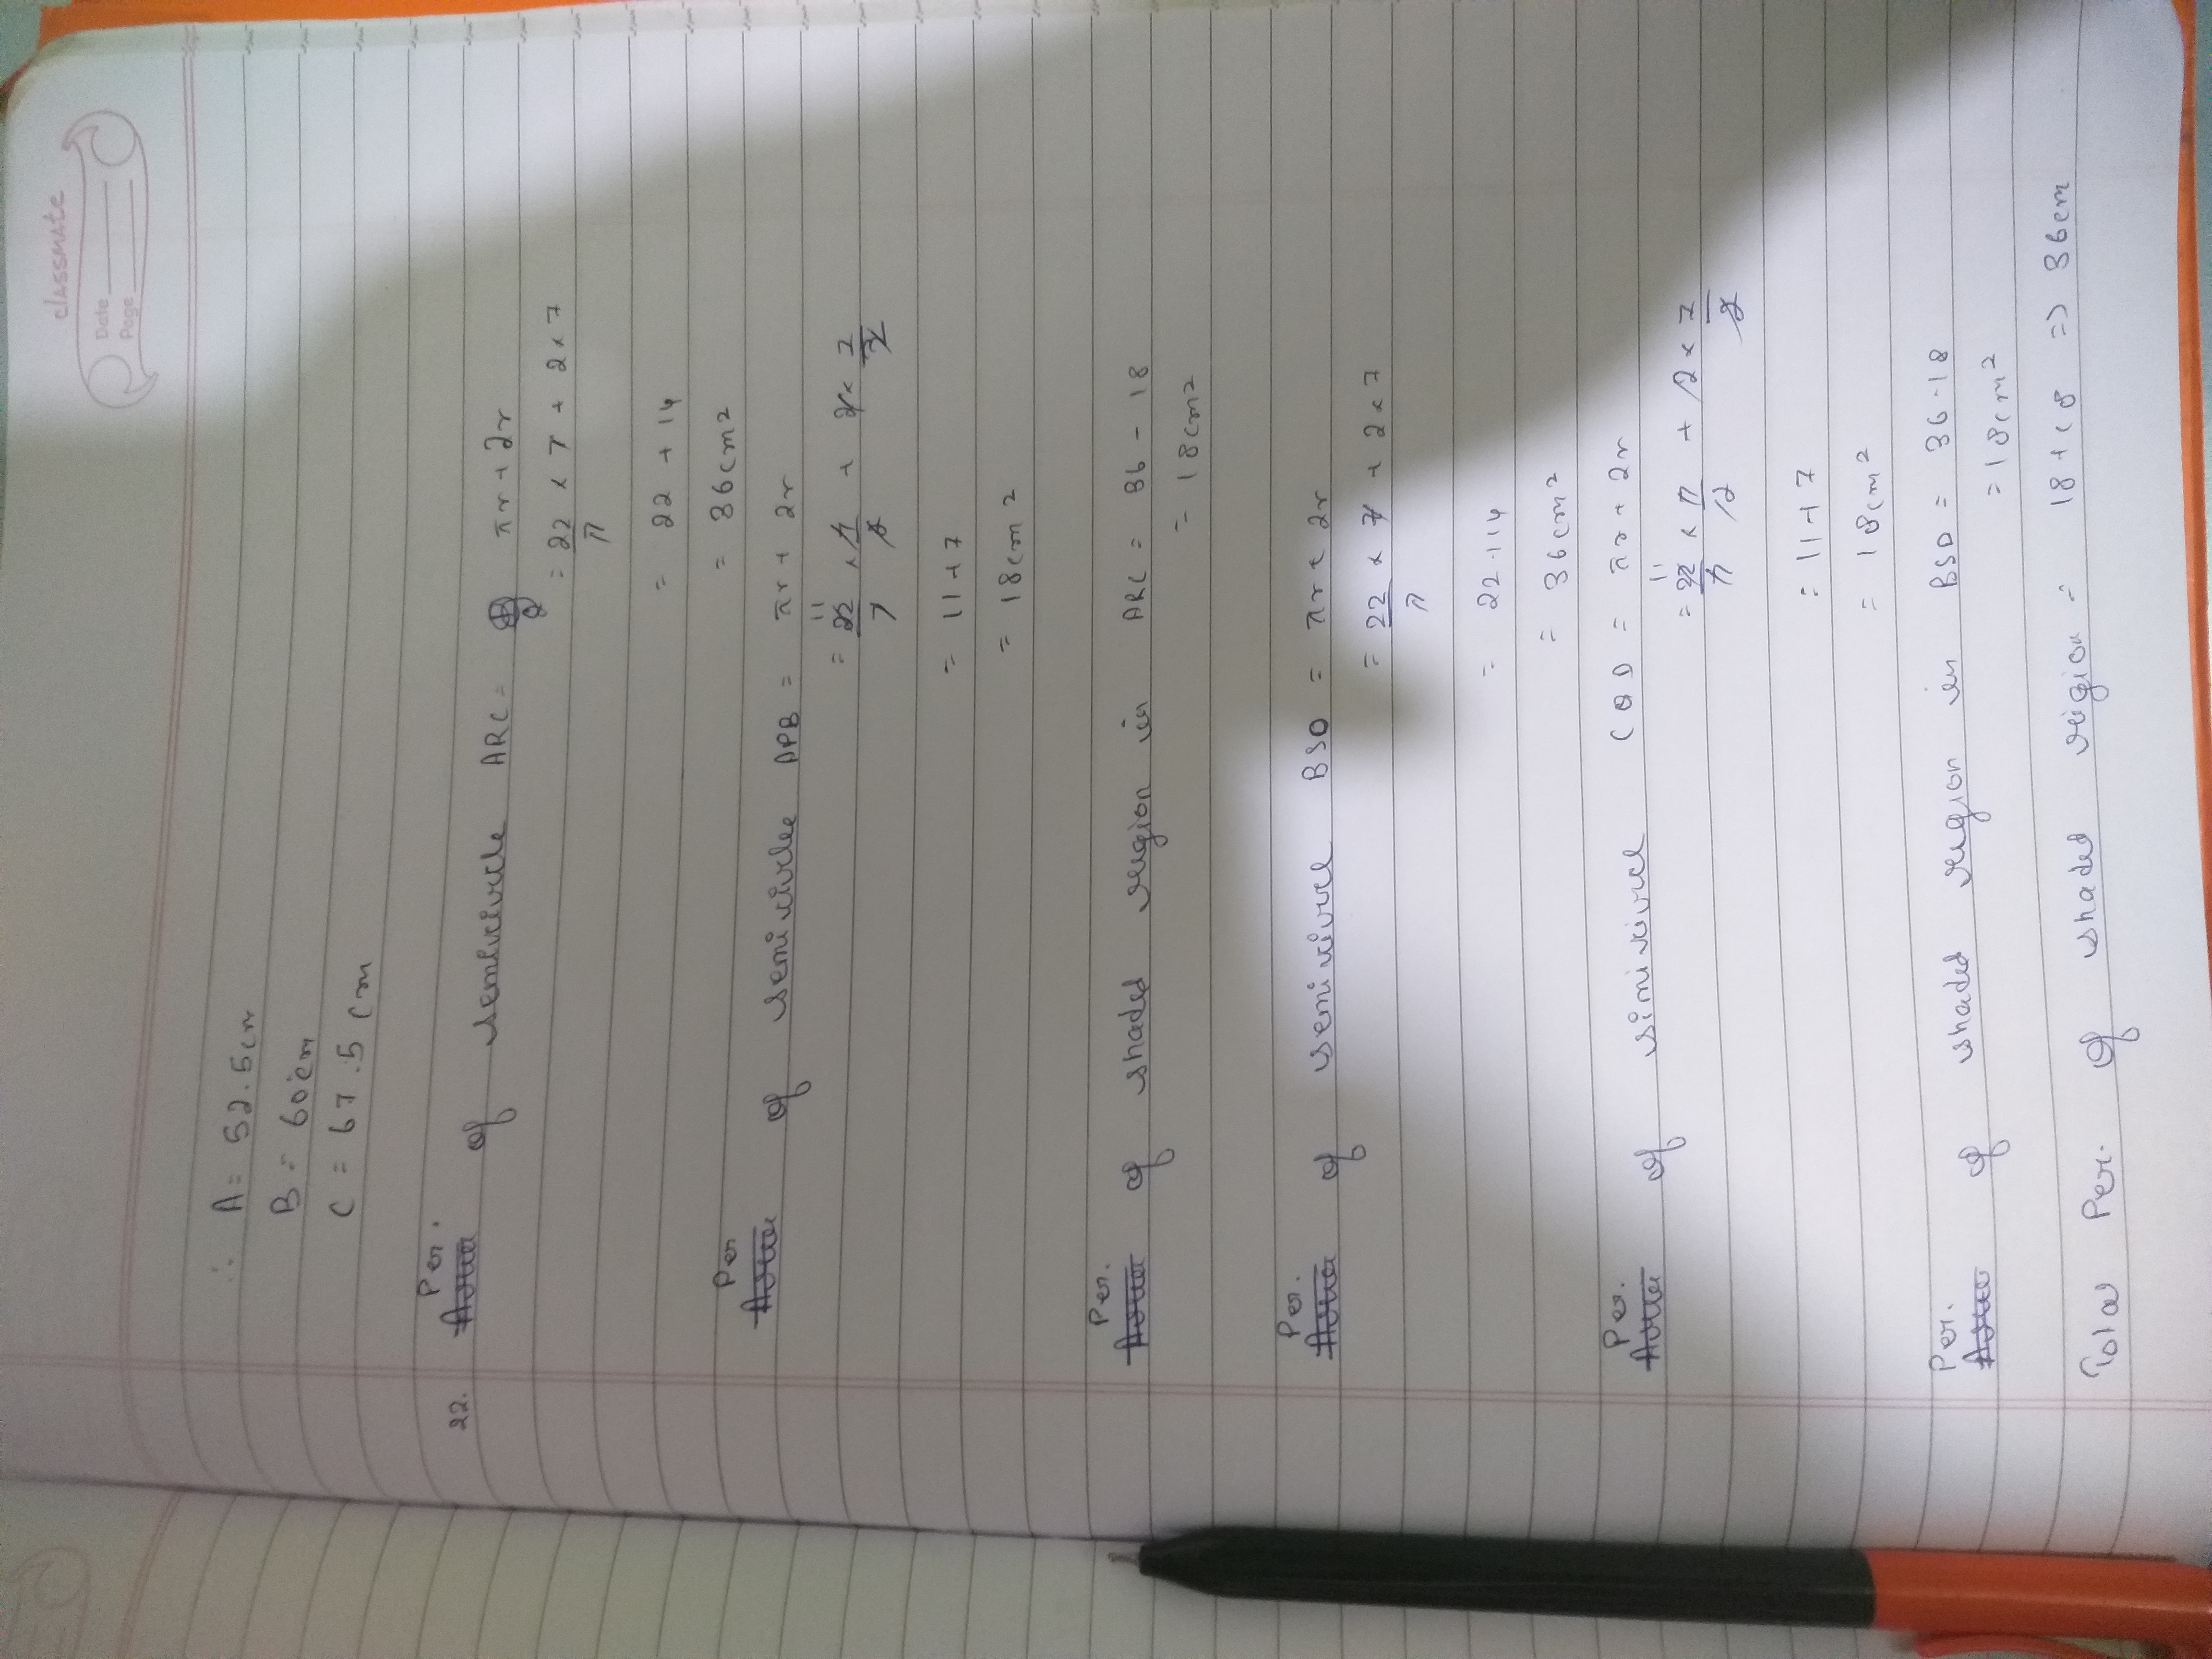 classmate
Date
Page
∴ A = 52.5cm
B = 60cm
C = 67.5cm
Per.
22. of semicircle ARC = πr + 2r
= 22/7 × 7 + 2 × 7
= 22 + 14
= 36cm²
Per
of semicircle APB = πr + 2r
= 22/7 × 7/2 + 2 × 7/2
= 11 + 7
= 18cm²
Per.
of shaded region in ARC = 36 - 18
= 18cm²
Per.
of semicircle BSD = πr + 2r
= 22/7 × 7 + 2 × 7
= 22 + 14
= 36cm²
Per.
of CQD = πr + 2r
= 22/7 × 7/2 + 2 × 7/2
= 11 + 7
= 18cm²
Per.
of shaded region in BSD = 36 - 18
= 18cm²
Total Per. of shaded region = 18 + 18 => 36cm